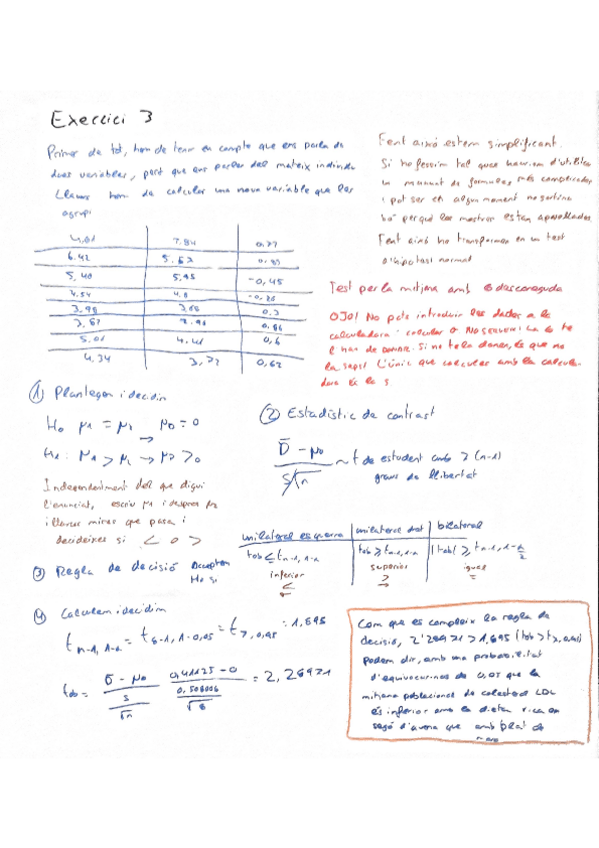 Exercici 3
Primer de tot, hem de tenir en compte que ens parla de
dues variables, però que ens parlen del mateix individu
Llavors hem de calcular una nova variable que les
agrupi
Fent això estem simplificant.
Si ho fessim tal qual hauríem d'utilitzar
un muntant de formules més complicades
i pot ser en algun moment no sortiria
bé perquè les mostres estan aparellades.
Fent això ho transformem en un test
d'hipòtesi normal
4,61 3,84 0,77
6,42 5,57 0,85
5,40 5,85 -0,45
4,54 4,8 -0,26
3,98 3,68 0,3
3,82 2,96 0,86
5,01 4,41 0,6
4,34 3,72 0,62
Test per la mitjana amb σ desconeguda
OJO! No pots introduir les dades a la
calculadora i calcular σ No serveix! La σ te
l'han de donar. Si no te la donen, és que no
la saps! L'únic que calcules amb la calcula-
dora és la s.
① Plantegem i decidim
H₀ μ₁ = μ₂ → μD = 0
H₁: μ₁ > μ₂ → μD > 0
Independentment del que digui
l'enunciat, escriu μ₁ i després μ₂
i llavors mires que passa i
decideixes si < o >
② Estadístic de contrast
D̄ - μ₀ / S/√n ~ t de student amb 7 (n-1)
graus de llibertat
③ Regla de decisió Acceptem
H₀ si
unilateral esquerra | unilateral dret | bilateral
tob ≤ tn-1, 1-α | tob ≥ tn-1, 1-α | |tob| ≥ tn-1, 1-α/2
inferior superior igual
≤ ≥ =
④ Calculem i decidim
tn-1, 1-α = t8-1, 1-0,05 = t7, 0,95 = 1,895
tob = D̄ - μ₀ / s/√n = 0,41125 - 0 / 0,508006/√8 = 2,28971
Com que es compleix la regla de
decisió, 2'28971 > 1,895 (tob > t7, 0,95)
podem dir, amb una probabilitat
d'equivocar-nos de 0,05 que la
mitjana poblacional de colesterol LDL
és inferior amb la dieta rica en
segó d'avena que amb